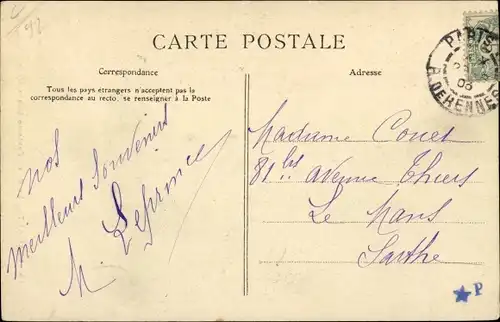 92
CARTE POSTALE
Correspondance
Tous les pays étrangers n'acceptent pas la
correspondance au recto, se renseigner à la Poste
Nos
meilleurs souvenirs
M.
Adresse
Madame Couet
81 bis avenue Thiers
Le Mans
Sarthe
PARIS
R. DEHENNE
P